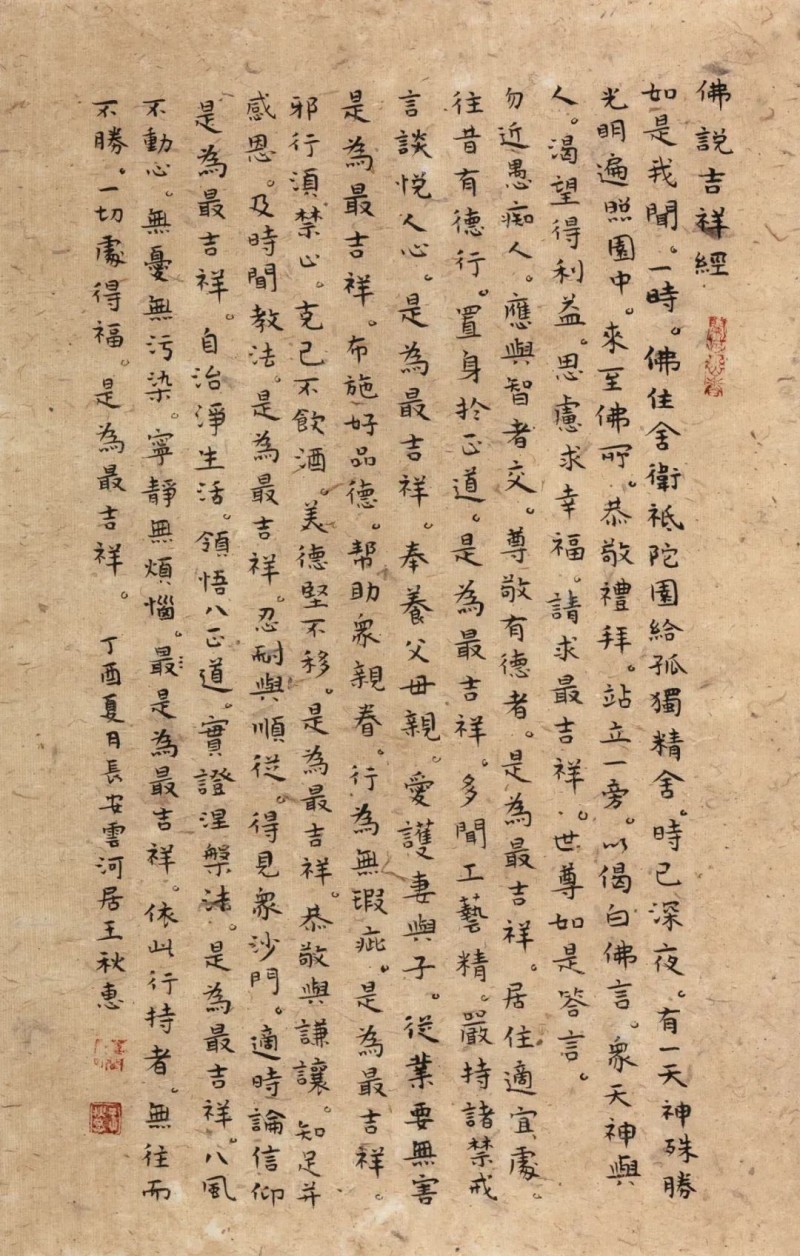 佛說吉祥經
如是我聞。一時。佛住舍衛祇陀園給孤獨精舍。時已深夜。有一天神殊勝
光明遍照園中。來至佛所。恭敬禮拜。站立一旁。以偈白佛言。眾天神與
人。渴望得利益。思慮求幸福。請求最吉祥。世尊如是答言。
勿近愚痴人。應與智者交。尊敬有德者。是為最吉祥。居住適宜處。
往昔有德行。置身於正道。是為最吉祥。多聞工藝精。嚴持諸禁戒
言談悅人心。是為最吉祥。奉養父母親。愛護妻與子。從業要無害
是為最吉祥。布施好品德。帮助眾親眷。行為無瑕疵。是為最吉祥。
邪行須禁止。克己不飲酒。美德堅不移。是為最吉祥。恭敬與謙讓。知足并
感恩。及時聞教法。是為最吉祥。忍耐與順從。得見眾沙門。適時論信仰
是為最吉祥。自治淨生活。領悟八正道。實證涅槃法。是為最吉祥。八風
不動心。無憂無污染。寧靜無煩惱。最是為最吉祥。依此行持者。無往而
不勝。一切處得福。是為最吉祥。丁酉夏月長安雲河居王秋惠